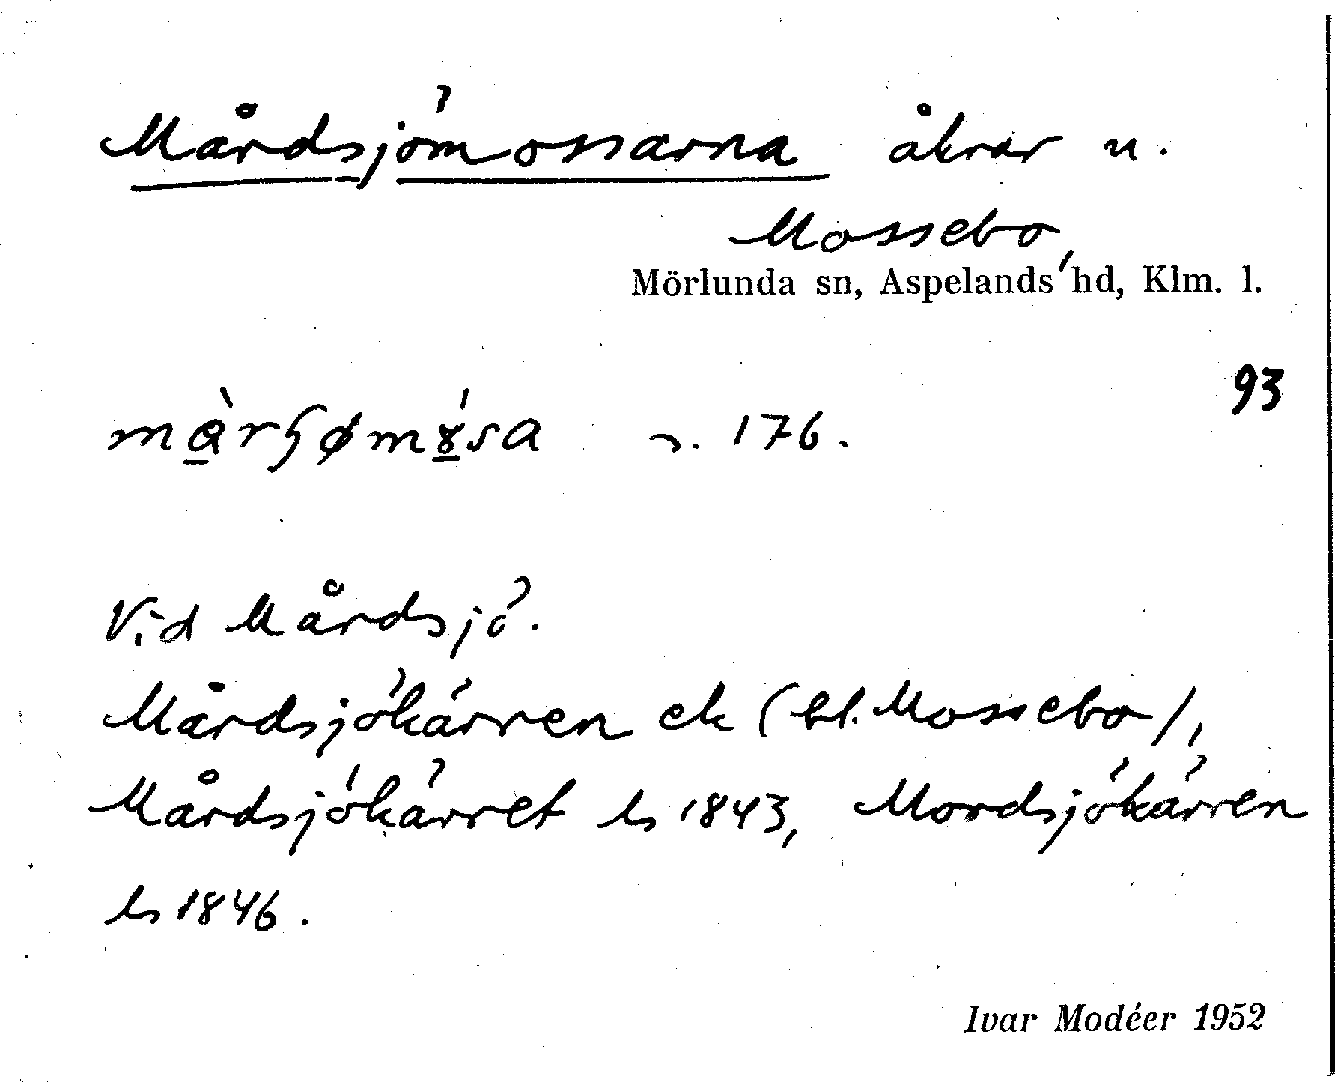 Mårdsjömossarna åkrar u.
Mossebo,
Mörlunda sn, Aspelands hd, Klm. l.
93
176.
Vid Mårdsjö.
Mårdsjökärren ek (bl. Mossebo/,
Mårdsjökärret ls 1843, Mordsjökärren
ls 1846.
Ivar Modéer 1952